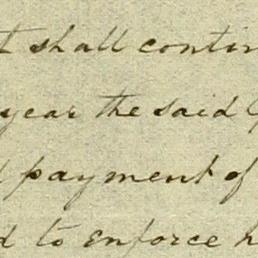 t shall contin
year the said
payment of
d to enforce h